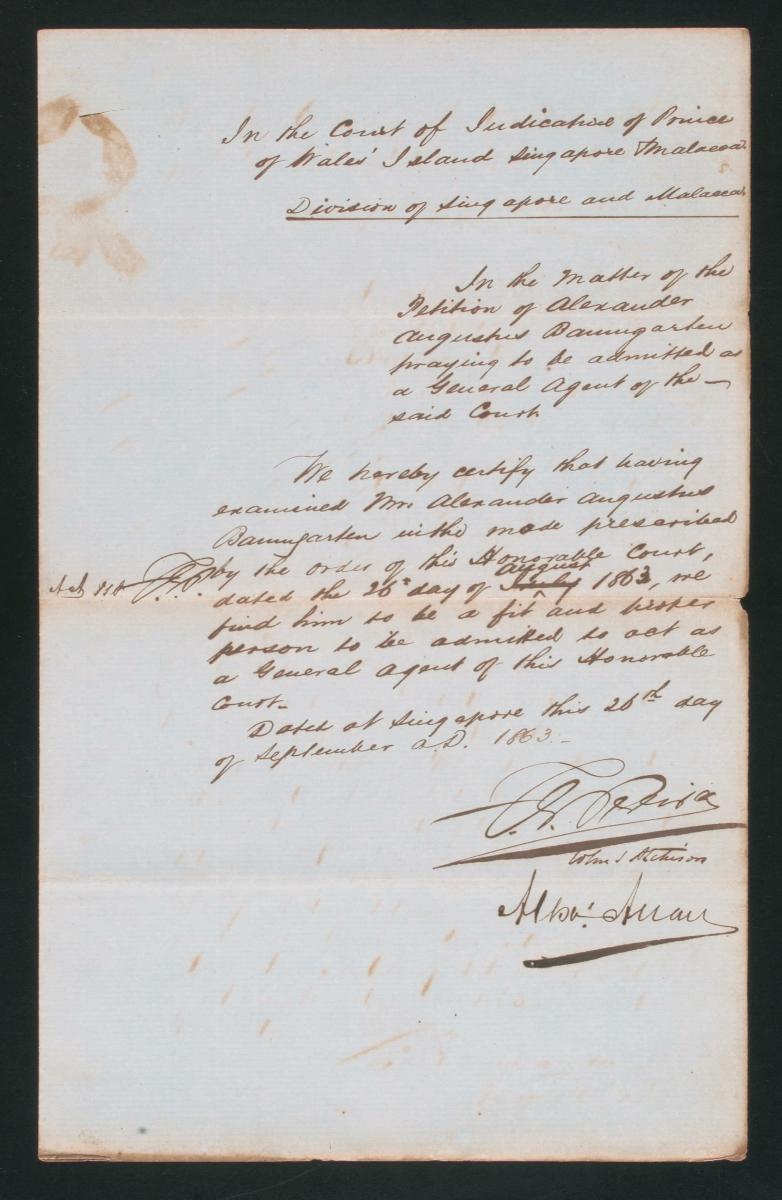 In the Court of Judicature of Prince
of Wales' Island Singapore & Malacca.
Division of Singapore and Malacca.
In the Matter of the
Petition of Alexander
Augustus Baumgarten
praying to be admitted as
a General Agent of the —
said Court
We hereby certify that having
examined Mr. Alexander Augustus
Baumgarten in the mode prescribed
by the order of this Honorable Court,
august
dated the 26th day of July 1863, we
find him to be a fit and proper
person to be admitted to act as
a General Agent of this Honorable
Court.
Dated at Singapore this 26th day
of September A.D. 1863.
John S Atchison